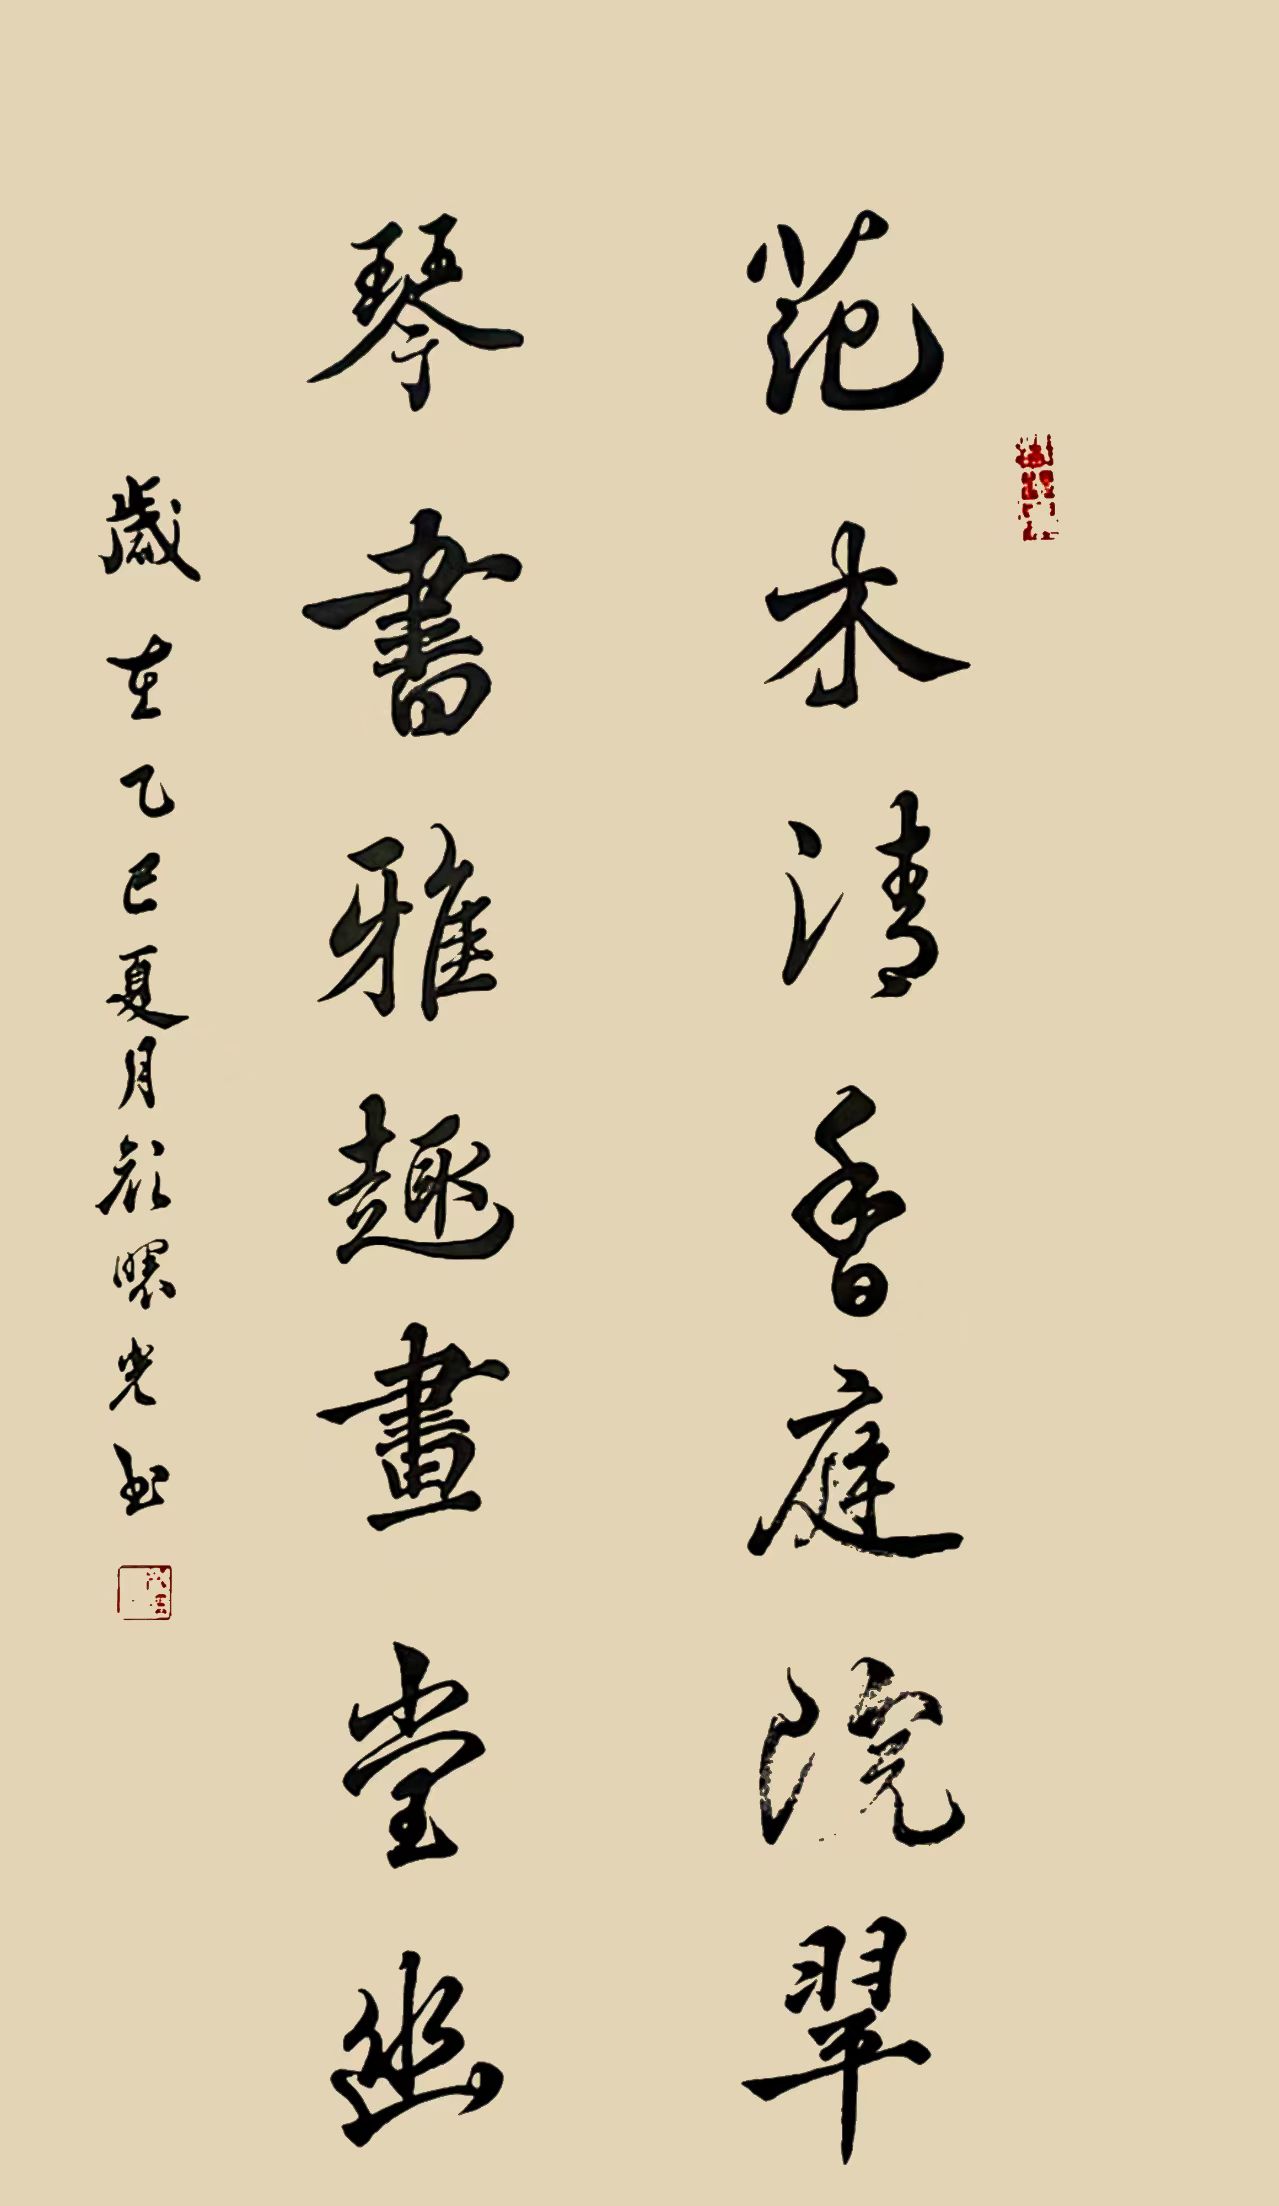 花木清香庭院翠
琴書雅趣畫堂幽
歲在乙巳夏月顏曙光書